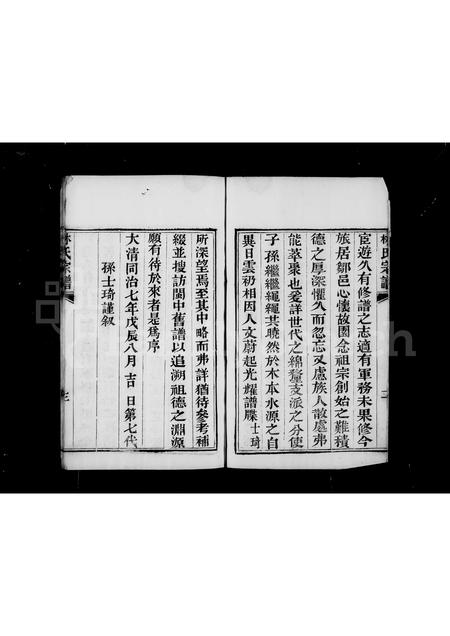 林氏宗譜
宦遊久有修譜之志適有軍務未果修今
旅居鄒邑心懷故園念祖宗創始之難積
德之厚深懼久而忽忘又慮族人散處弗
能萃聚也爰詳世代之綿延支派之分使
子孫繼繼繩繩共曉然於木本水源之自
異日雲礽相因人文蔚起光耀譜牒士琦
所深望焉至其中略而弗詳猶待參考補
綴並搜訪閩中舊譜以追溯祖德之淵源
願有待於來者是為序
大清同治七年戊辰八月吉日第七代
孫士琦謹叙
林氏宗譜